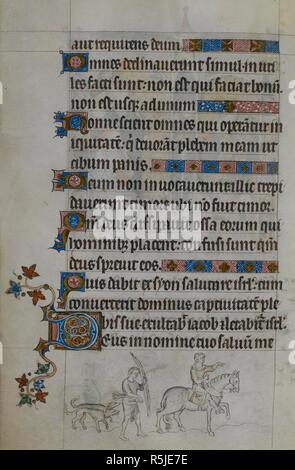 aut requirens deum
Omnes declinauerunt simul inuti
les facti sunt: non est qui faciat bonū.
non est usq; ad unum
Nonne scient omnes qui operātur in
iquitatē: q̄ deuorāt plebem meam ut
cibum panis.
Deum non inuocauerunt: illic trepi
dauerunt timore ubi nō fuit timor.
Qm̄ deus dissipauit ossa eorum qui
hominib; placent: confusi sunt qm̄
deus spreuit eos.
Quis dabit ex syon salutare isrl̄: cum
conuerterit dominus captiuitatē ple
bis sue exultab̄ iacob ⁊ letabit̄ isrl̄.
Deus in nomine tuo saluū me
alamy
R5JE7E